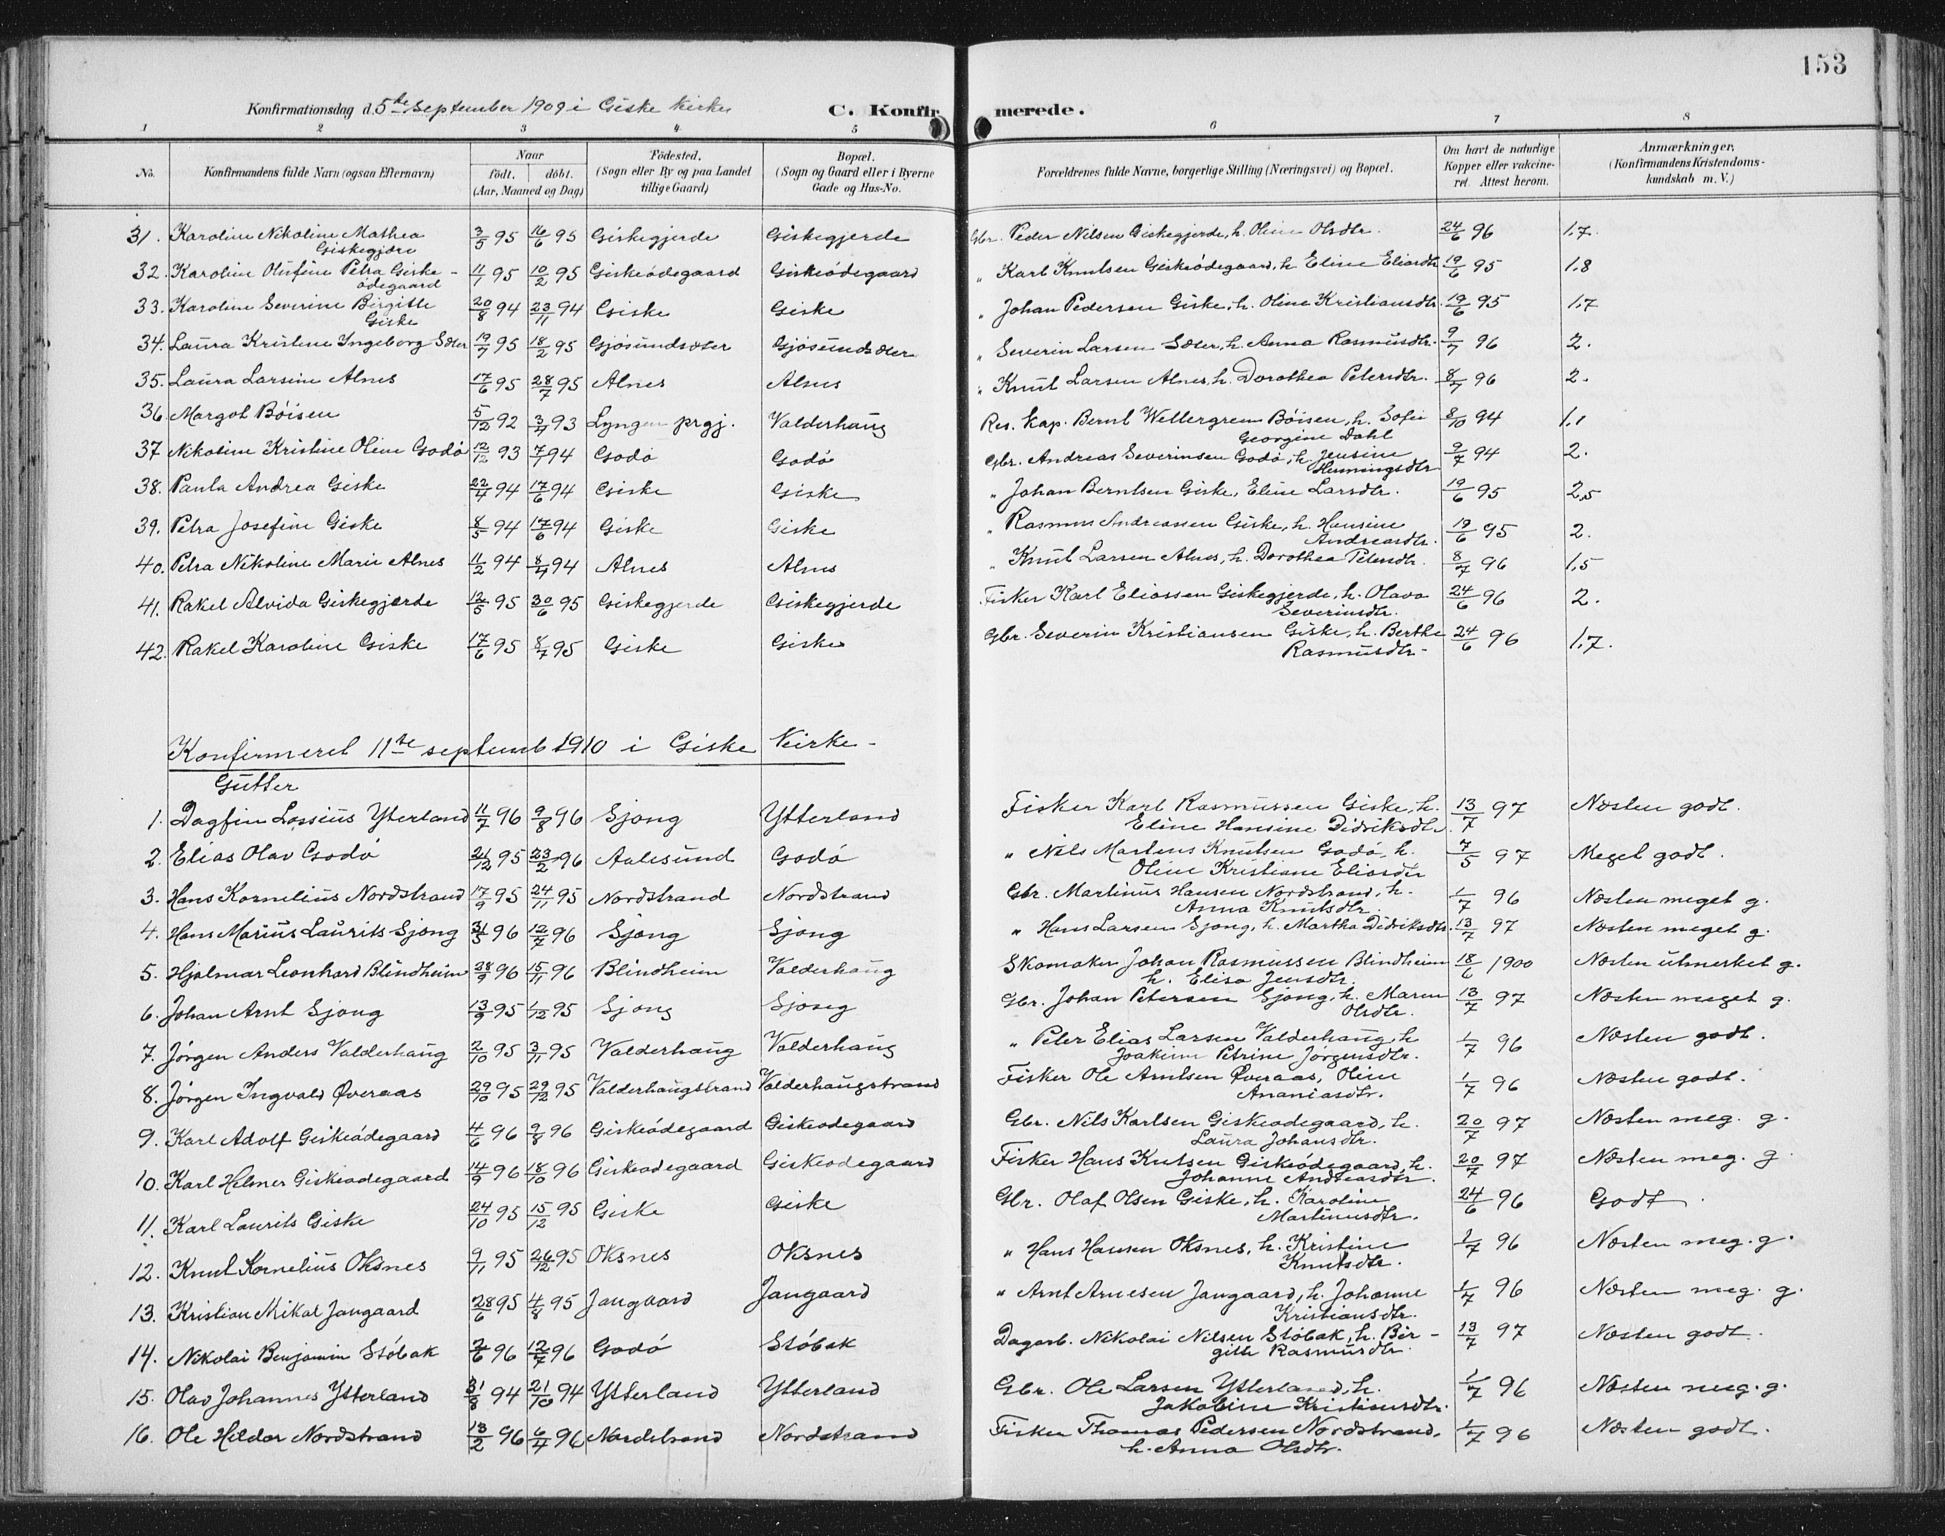 153
Konfirmationsdag d. 5te september 1909 i Giske kirke C. Konfirmerede.
1 2 3 4 5 6 7 8
No. Konfirmandens fulde Navn (ogsaa Efternavn) Naar født. døbt. (Aar, Maaned og Dag) Fødested. (Sogn eller By og paa Landet tillige Gaard) Bopæl. (Sogn og Gaard eller i Byerne Gade og Hus-No. Forældrenes fulde Navne, borgerlige Stilling (Næringsvei) og Bopæl. Om havt de naturlige Kopper eller vakcineret. Attest herom. Anmærkninger. (Konfirmandens Kristendomskundskab m. V.)
31. Karoline Nikoline Mathea Giskegjære 3/5 95 16/6 95 Giskegjerde Giskegjerde Gbr. Peder Nilsen Giskegjerde, h. Oline Olsdtr. 24/6 96 1.7.
32. Karoline Olufine Petra Giskeødegaard 11/1 95 10/2 95 Giskeødegaard Giskeødegaard " Karl Knutsen Giskeødegaard, h Eline Eliasdtr 19/6 95 1.8
33. Karoline Severine Birgitte Giske 20/8 94 23/11 94 Giske Giske " Johan Pedersen Giske, h. Oline Kristiansdtr. 19/6 95 1.7
34. Laura Kristine Ingeborg Sæter 19/7 95 18/2 95 Gjøsundsæter Gjøsundsæter " Severin Larsen Sæter, h. Anna Rasmusdtr. 9/7 96 2.
35. Laura Larsine Alnes 17/6 95 28/7 95 Alnes Alnes " Knut Larsen Alnes, h. Dorothea Petersdtr. 8/7 96 2.
36. Margot Bøisen 5/12 92 3/4 93 Lyngen prgj. Valderhaug Res. kap. Bernt Wettergreen Bøisen, h. Sofie Georgine Dahl 8/10 94 1.1
37 Nikoline Kristine Oline Godø 12/12 93 7/1 94 Godø Godø Gbr. Andreas Severinsen Godø, h. Jensine Hemingsdtr 9/7 94 2.
38. Paula Andrea Giske 22/4 94 17/6 94 Giske Giske " Johan Berntsen Giske, Eline Larsdtr. 19/6 95 2,5
39. Petra Josefine Giske 8/5 94 17/6 94 Giske Giske " Rasmus Andreassen Giske, h. Hansine Andreasdtr. 19/6 95 2.
40. Petra Nikoline Marie Alnes 11/2 94 8/4 94 Alnes Alnes " Knut Larsen Alnes, h. Dorothea Petersdtr. 8/7 96 1.5
41. Rakel Alvida Giskegjerde 12/5 95 30/6 95 Giskegjerde Giskegjerde Fisker Karl Eliassen Giskegjerde, h. Olava Severinsdtr. 24/6 96 2.
42. Rakel Karoline Giske 17/6 95 8/7 95 Giske Giske Gbr. Severin Kristiansen Giske, h. Berthe Rasmusdtr. 24/6 96 1.7.
Konfirmeret 11te septemb 1910 i Giske Kirke
Gutter
1. Dagfin Lossius Ytterland 11/7 96 9/8 96 Sjong Ytterland Fisker Karl Rasmussen Giske, h. Eline Hansine Didriksdtr. 13/7 97 Næsten godt.
2. Elias Olav Godø 21/12 95 23/2 96 Aalesund Godø " Nils Martens Knutsen Godø, h. Oline Kristiane Eliasdtr 7/5 97 Meget godt.
3. Hans Kornelius Nordstrand 17/9 95 24/11 95 Nordstrand Nordstrand Gbr. Martinus Hansen Nordstrand, h. Anna Knutsdtr. 1/7 96 Næsten meget g.
4. Hans Marius Laurits Sjong 31/5 96 12/7 96 Sjong Sjong " Hans Larsen Sjong, h. Martha Didriksdtr. 13/7 97 Næsten meget g.
5. Hjalmar Leonhard Blindheim 28/9 96 15/11 96 Blindheim Valderhaug Skomaker Johan Rasmussen Blindheim h. Elisa Jensdtr. 18/6 1900 Næsten utmerket g.
6. Johan Arnt Sjong 13/9 95 1/12 95 Sjong Sjong Gbr. Johan Petersen Sjong, h. Maren Olsdtr. 13/7 97 Næsten meget g.
7. Jørgen Anders Valderhaug 2/10 95 3/11 95 Valderhaug Valderhaug " Peter Elias Larsen Valderhaug, h Joakime Petrine Jørgensdtr. 1/7 96 Næsten godt.
8. Jørgen Ingvald Overaas 29/10 95 29/12 95 Valderhaugstrand Valderhaugstrand Fisker Ole Arntsen Overaas, Oline Ananiasdtr. 1/7 96 Næsten godt.
9. Karl Adolf Giskeødegaard 4/6 96 9/8 96 Giskeødegaard Giskeødegaard Gbr. Nils Karlsen Giskeødegaard, h. Laura Johansdtr. 20/7 97 Næsten meg. g.
10. Karl Helmer Giskeødegaard 14/9 96 18/10 96 Giskeødegaard Giskeødegaard Fisker Hans Knutsen Giskeødegaard, h. Johanne Andreasdtr. 20/7 97 Næsten meg. g.
11. Karl Laurits Giske 24/10 95 15/12 95 Giske Giske Gbr. Olaf Olsen Giske, h. Karoline Martinusdtr. 24/6 96 Godt
12. Knut Kornelius Oksnes 9/11 95 26/12 95 Oksnes Oksnes " Hans Hansen Oksnes, h. Kristine Knutsdtr. 1/7 96 Næsten meg. g.
13. Kristian Mikal Jangaard 28/6 95 4/8 95 Jangaard Jangaard " Arnt Arnesen Jangaard, h. Johanne Kristiansdtr. 1/7 96 Næsten meg. g.
14. Nikolai Benjamin Støbak 7/6 96 12/7 96 Godø Støbak Dagarb. Nikolai Nilsen Støbak, h. Birgith Rasmusdtr. 13/7 97 Næsten godt.
15. Olav Johannes Ytterland 31/8 94 21/10 94 Ytterland Ytterland Gbr. Ole Larsen Ytterland, h. Jakobine Kristiansdtr. 1/7 96 Næsten meg. g.
16. Ole Hildor Nordstrand 13/2 96 6/4 96 Nordstrand Nordstrand Fisker Thomas Pedersen Nordstrand, h. Anna Olsdtr. 1/7 96 Næsten godt.